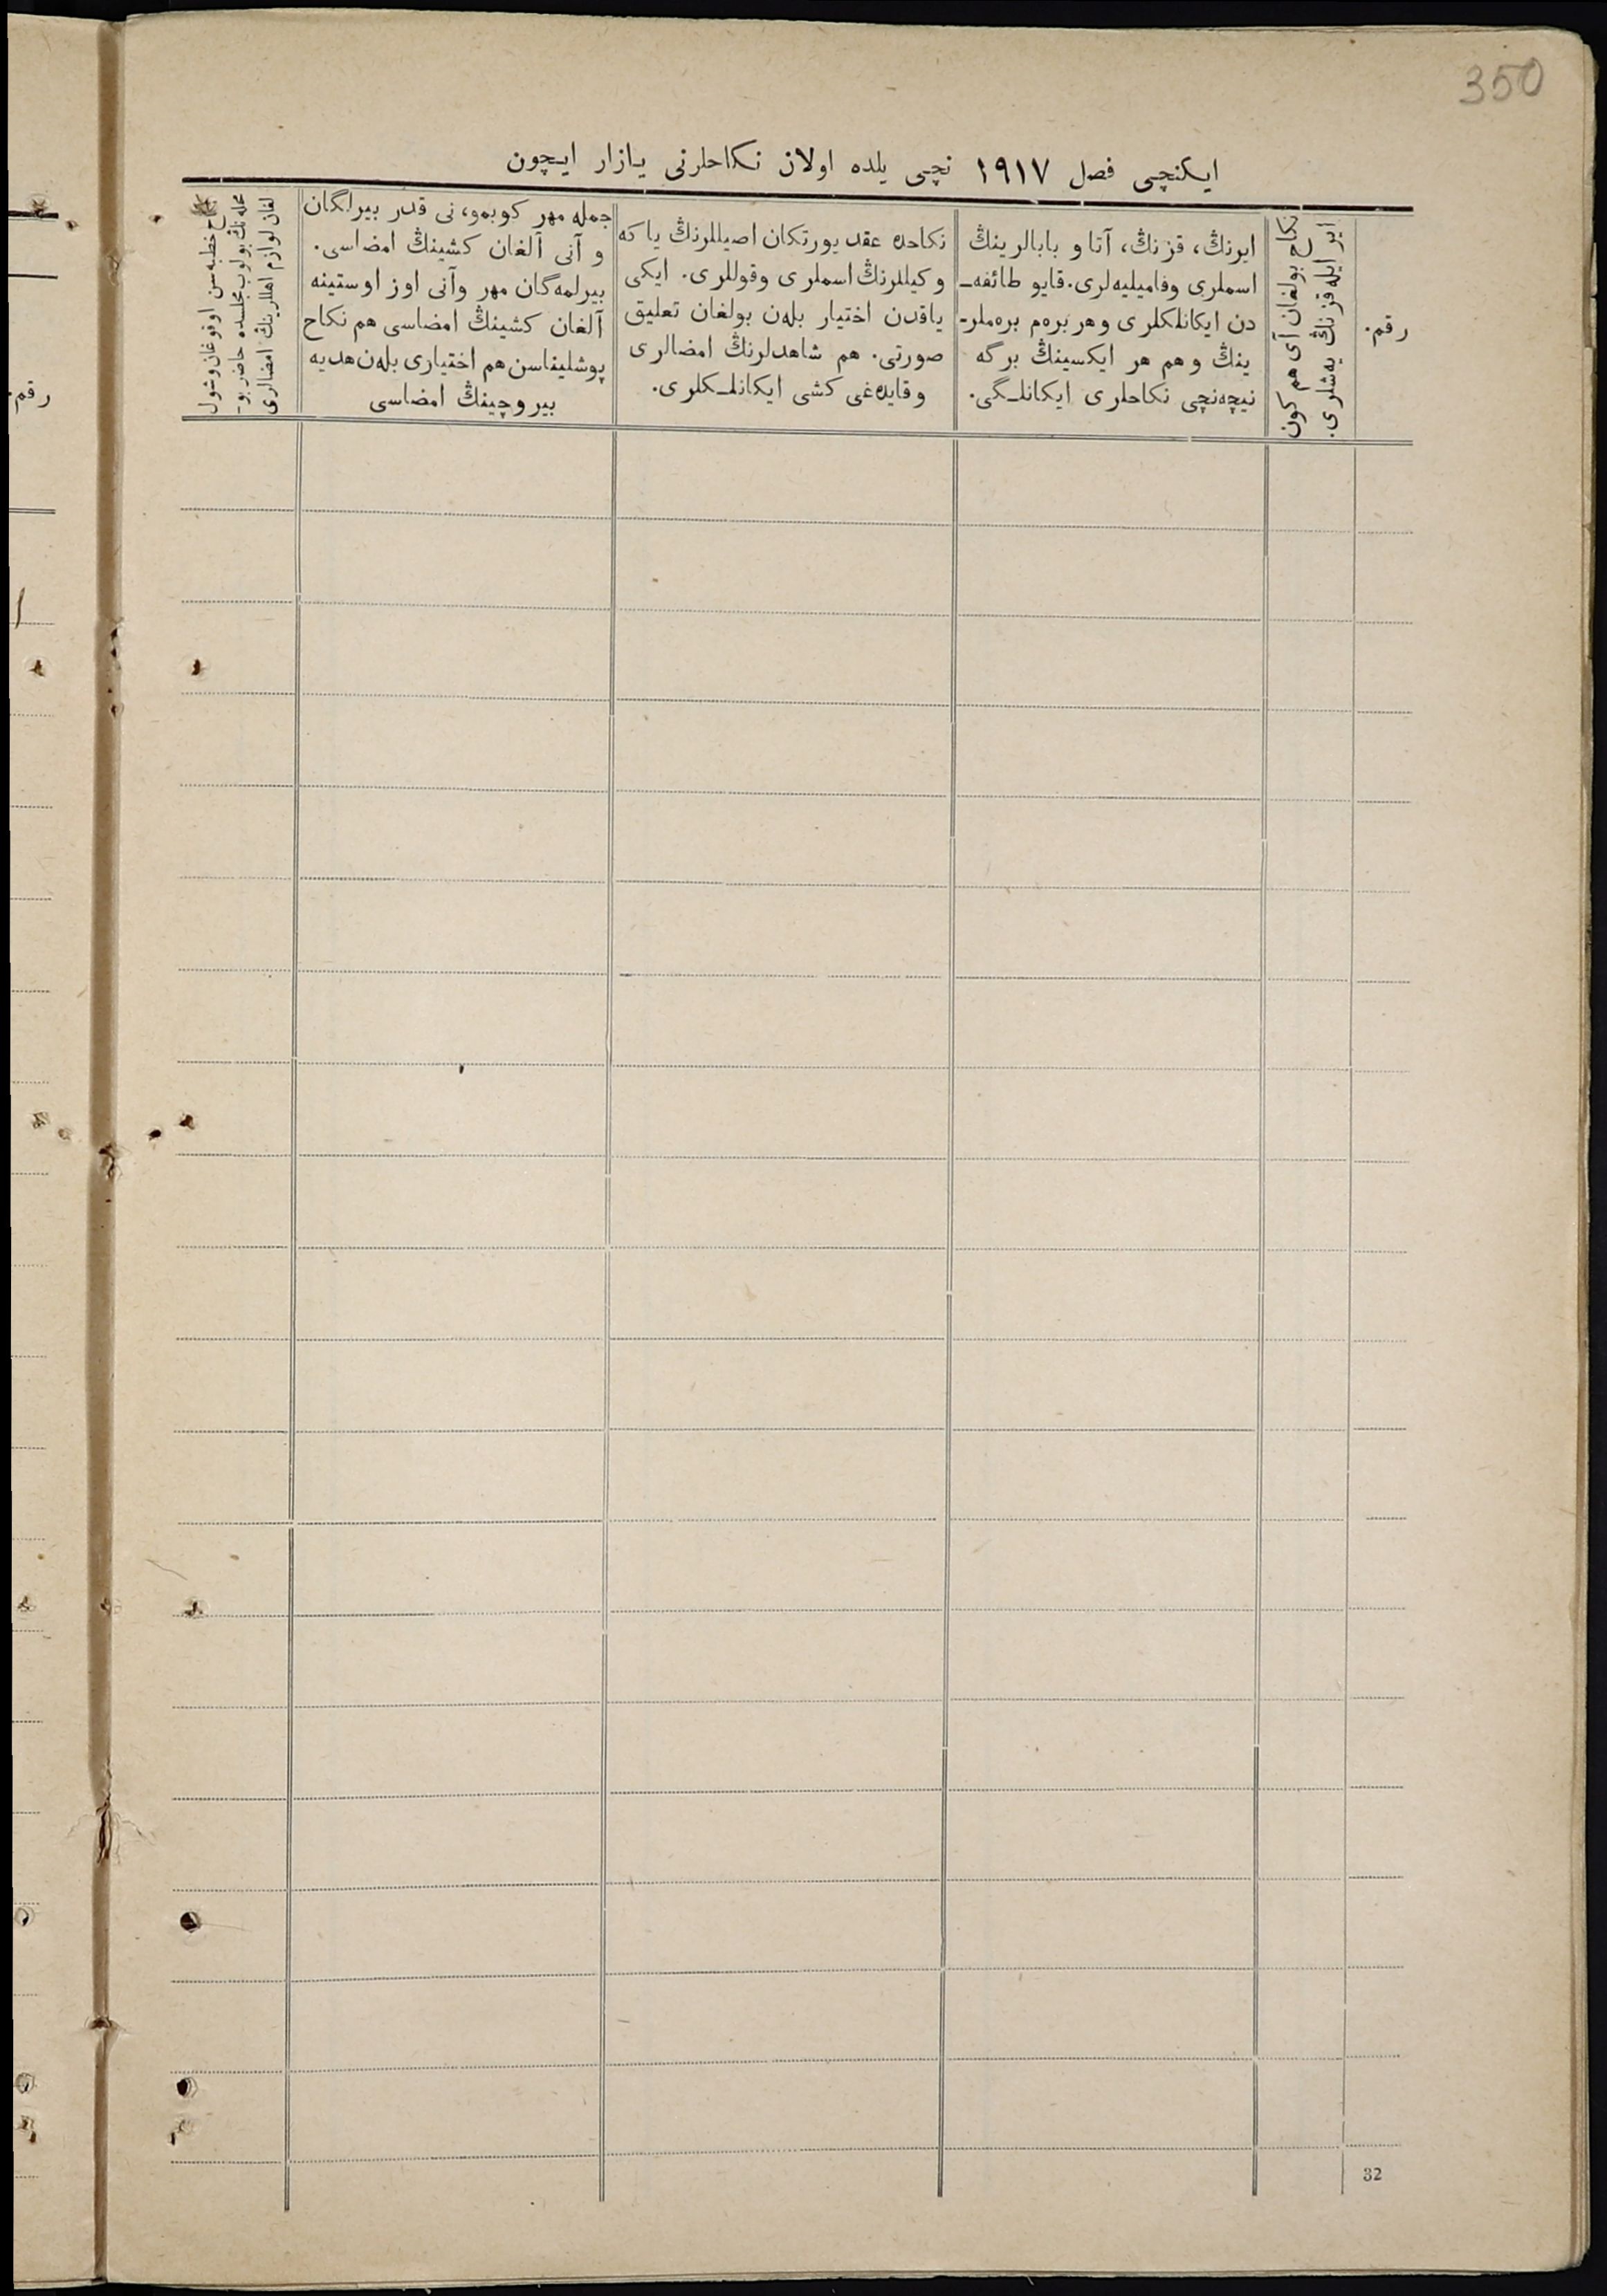 350
ایکنچی فصل ١٩١٧ نچی یلده اولان نکاحلرنی یازار ایچون
رقم.
نکاح بولغان آی هم کون
ایر ایله قزنڭ یه‌شلری.
ایرنڭ، قزنڭ، آتا و بابالرینڭ
اسملری وفامیلیه‌لری. قایو طائفه‌ـ
دن ایکانلکلری وهر بره‌م بره‌ملر-
ینڭ وهم هر ایکسینڭ برگه
نیچه‌نچی نکاحلری ایکانلـگی.
نکاحده عقد یورتکان اصیللرنڭ یا که
وکیللرنڭ اسملری وقوللری. ایکی
یاقدن اختیار بله‌ن بولغان تعلیق
صورتی. هم شاهدلرنڭ امضالری
وقایده‌غی کشی ایکانلـکلری.
جمله مهر کوبمو، نی قدر بیرلگان
و آنی آلغان کشینڭ امضاسی.
بیرلمه‌گان مهر وآنی اوز اوستینه
آلغان کشینڭ امضاسی هم نکاح
پوشلیناسن هم اختیاری بله‌ن هدیه
بیروچینڭ امضاسی
خطبه‌سن اوقوغان وشول
محله‌نڭ بولوب مجلسده حاضر بو-
لغان لوازم اهللرینڭ امضالری
رقم.
32